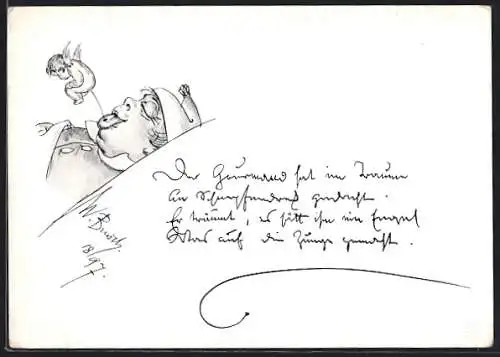 Der Gourmand hat im Traume
An Schnepfendreck gedacht.
Er träumt, es hätt ihm ein Engel
Was auf die Zunge gemacht.
W. Busch.
18/97.